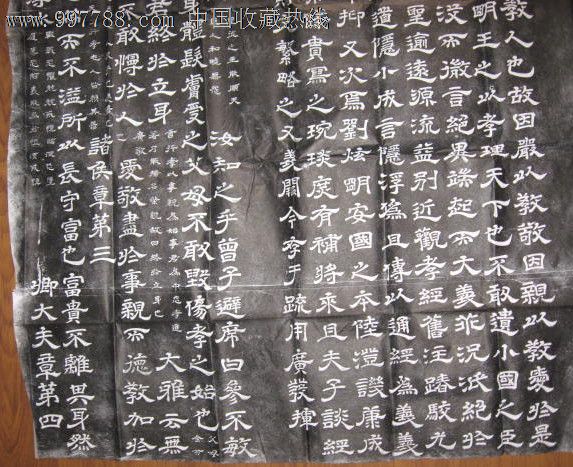 www.997788.com 中国收藏热线
教人也故因嚴以教敬因親以教愛於是
明王之以孝理天下也不敢遺小國之臣
没而微言絕異端起而大義乖況泯絕於
聖逾遠源流益別近觀孝經舊注踳駮尤
遺隱小成言隱浮偽且傳以通經為義義
抑又次焉劉炫明安國之本陸澄譏康成
貴寫之琬琰庶有補將來且夫子談經
繁略之又義闕今存于疏用廣發揮
汝知之乎曾子避席曰參不敏
身體髮膚受之父母不敢毀傷孝之始也
終於立身 言行孝以事親為始事君為中忠孝道著乃能揚名榮親故曰終於立身也 大雅云無
不敢慢於人 愛敬盡於事親而德教加於
諸侯章第三
而不溢所以長守富也富貴不離其身然
卿大夫章第四